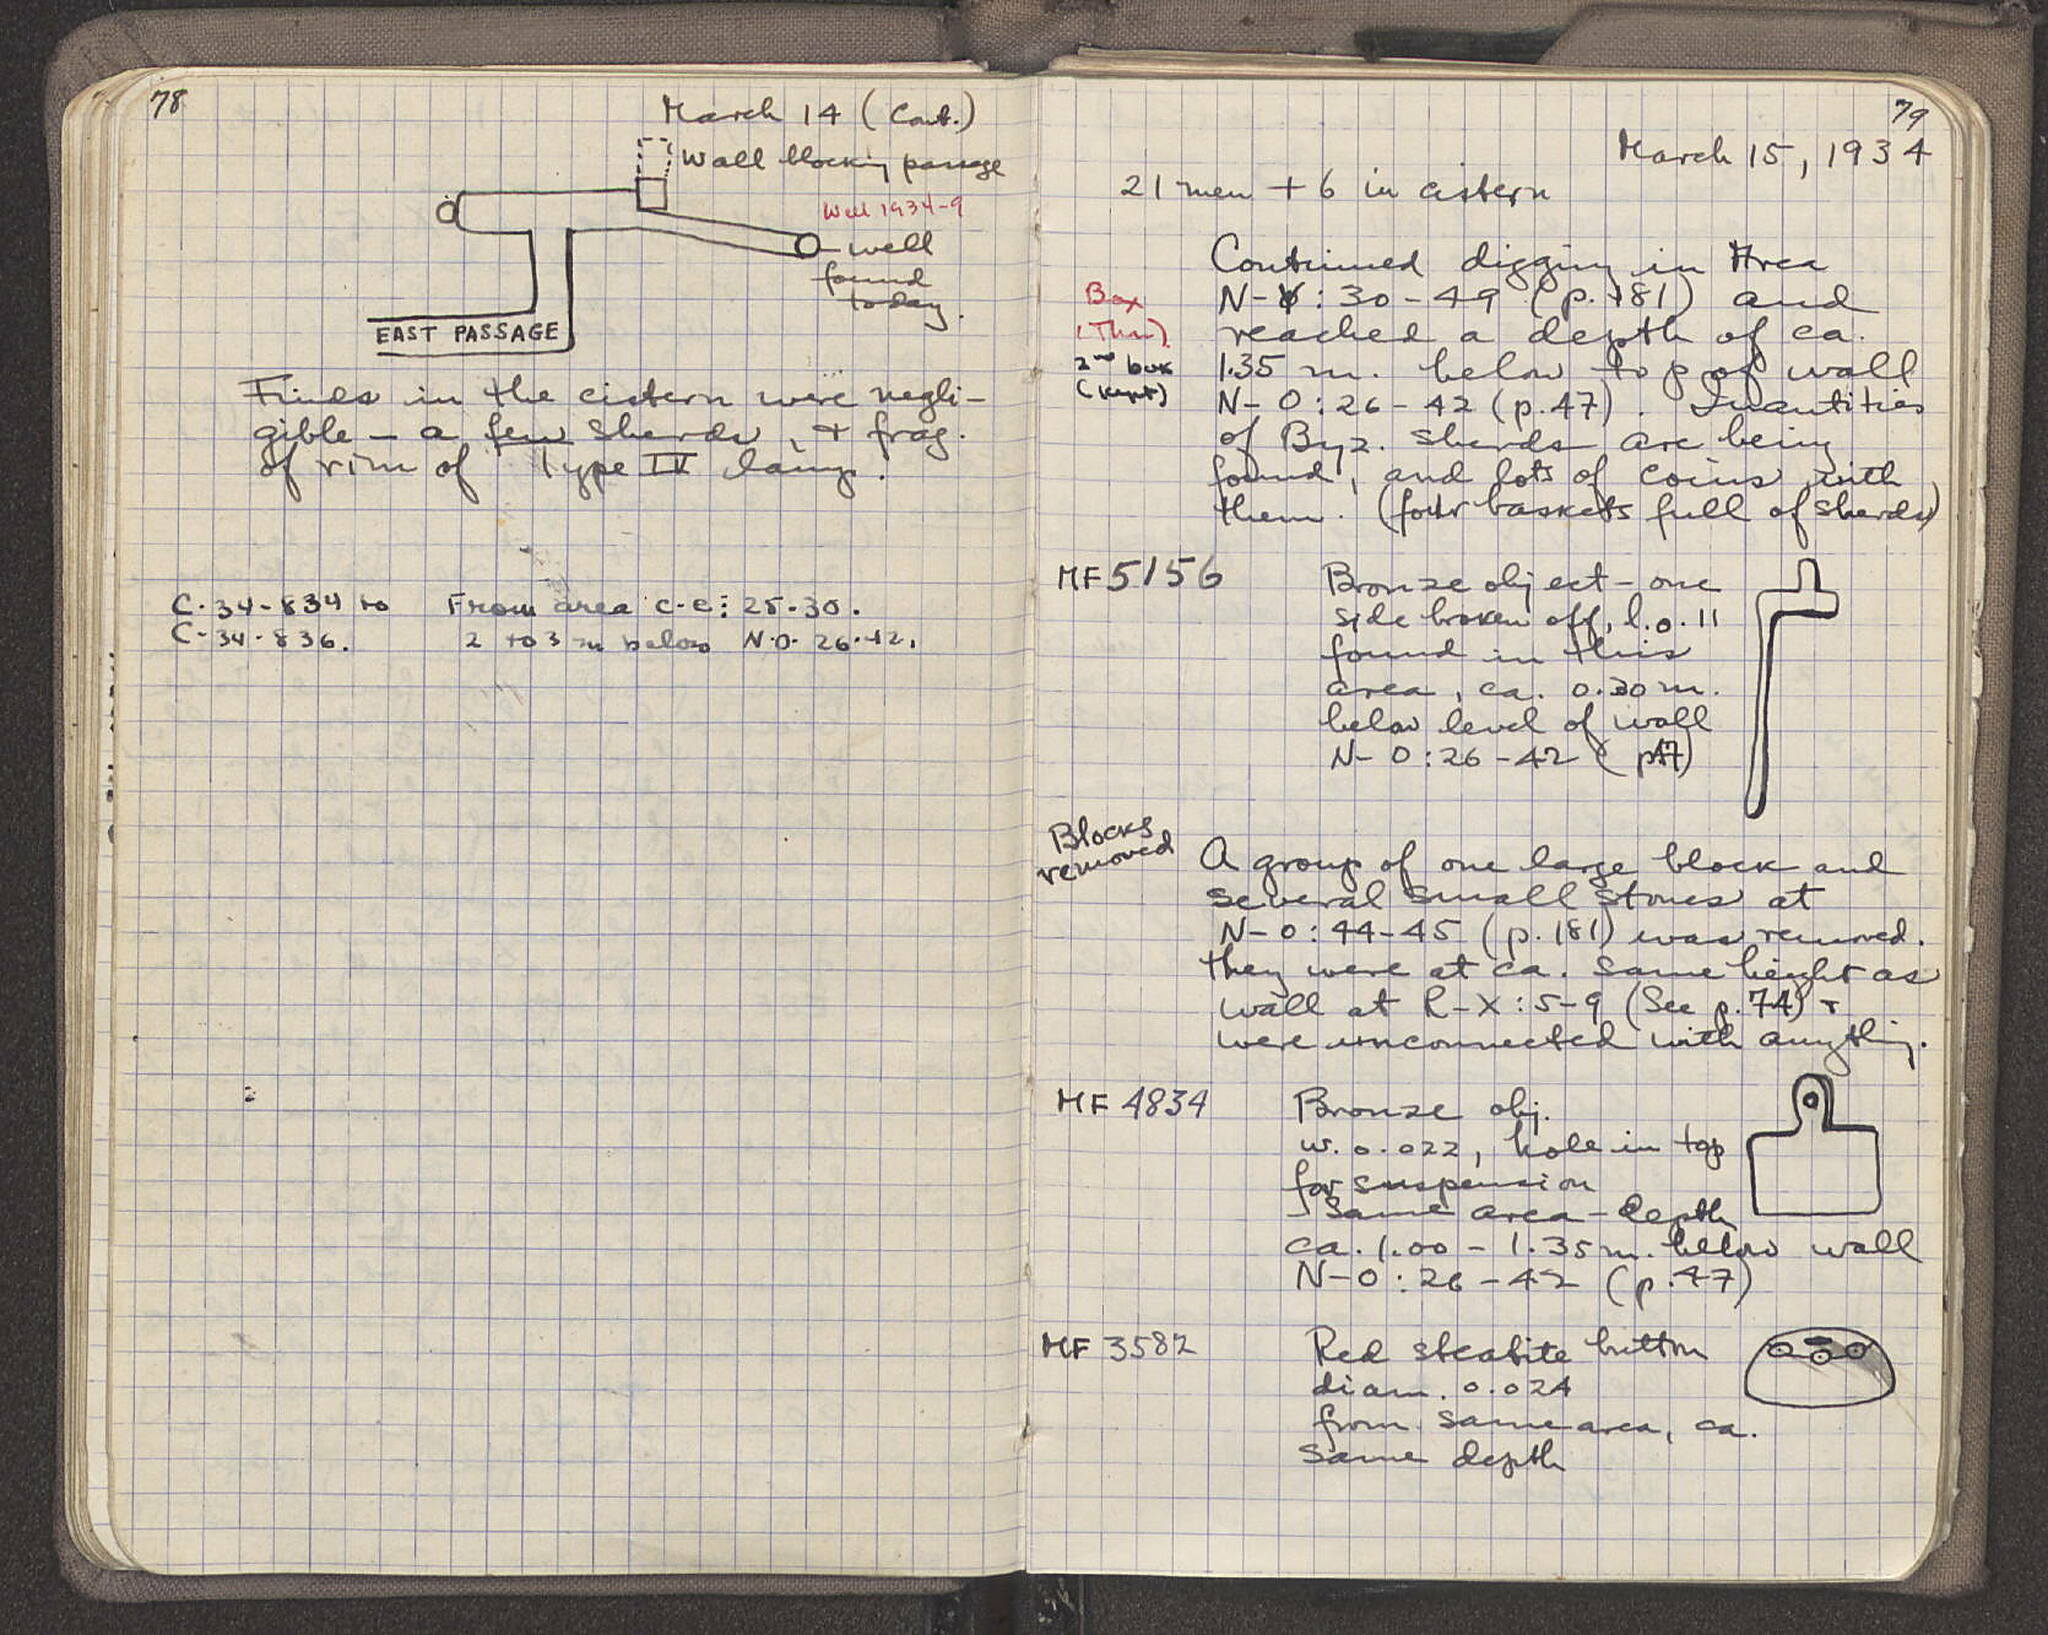 78
March 14 (Cont.)
Wall blocking passage
Well 1934-9
well
found
today.
EAST PASSAGE
Finds in the cistern were negli-
gible - a few sherds, + frag.
of rim of Type IV lamp.
C-34-834 to From area C-E: 25-30.
C-34-836. 2 to 3 m below N-O-26-42.
79
March 15, 1934
21 men + 6 in cistern
Continued digging in Area
Box N- : 30-49 (p. 181) and
reached a depth of ca.
2nd box 1.35 m. below top of wall
(Kept) N-O:26-42 (p.47). Quantities
of Byz. sherds are being
found, and lots of coins with
them. (four baskets full of sherds)
MF 5156 Bronze object - one
side broken off, l. 0.11
found in this
area, ca. 0.30 m.
below level of wall
N-O:26-42 (p47)
Blocks
removed
A group of one large block and
several small stones at
N-O:44-45 (p. 181) was removed.
They were at ca. same height as
wall at R-X:5-9 (See p. 74) +
were unconnected with anything.
MF 4834 Bronze obj.
w. 0.022, hole in top
for suspension
Same area - depth
ca. 1.00 - 1.35 m. below wall
N-O:26-42 (p.47)
MF 3582 Red steatite button
diam. 0.024
from same area, ca.
same depth